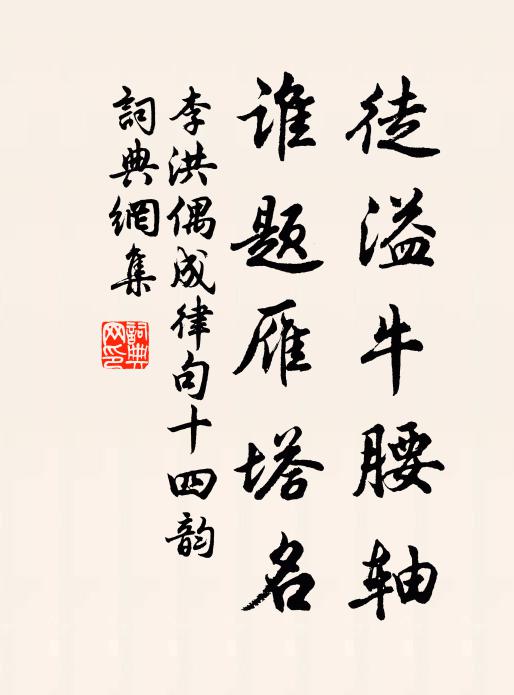 徒溢牛腰轴
谁题雁塔名
李洪偶成律句十四韵
詞典網集
詞典网印